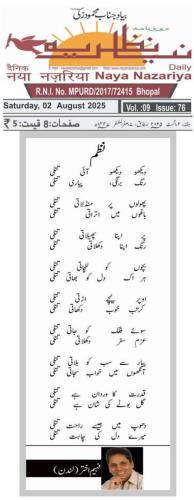 بیاد جناب محمود زکی
نیا نظریہ
Daily
दैनिक
नया नज़रिया Naya Nazariya
R.N.I. No. MPURD/2017/72415 Bhopal
Saturday, 02 August 2025
Vol. :09 Issue: 76
₹ 5 : صفحات:8 قیمت
نظم
دیکھو دیکھو آئی تتلی
رنگ برنگی، پیاری تتلی
پھولوں پر منڈلاتی تتلی
باغوں میں اتراتی تتلی
پر اپنا پھیلاتی تتلی
رنگ اپنا دکھلاتی تتلی
بچوں کو للچاتی تتلی
ہر اک دل کو بھاتی تتلی
اوپر نیچے اڑتی تتلی
کرتب خوب دکھاتی تتلی
سوئے فلک کو جاتی تتلی
عزم سفر دکھلاتی تتلی
پیار سے سب کو بلاتی تتلی
آنکھوں میں خواب سجاتی تتلی
قدرت کا وردان ہے تتلی
گل بوٹے کی شان ہے تتلی
دھوپ میں جیسے راحت تتلی
میرے دل کی چاہت تتلی
فہیم اختر (لندن)